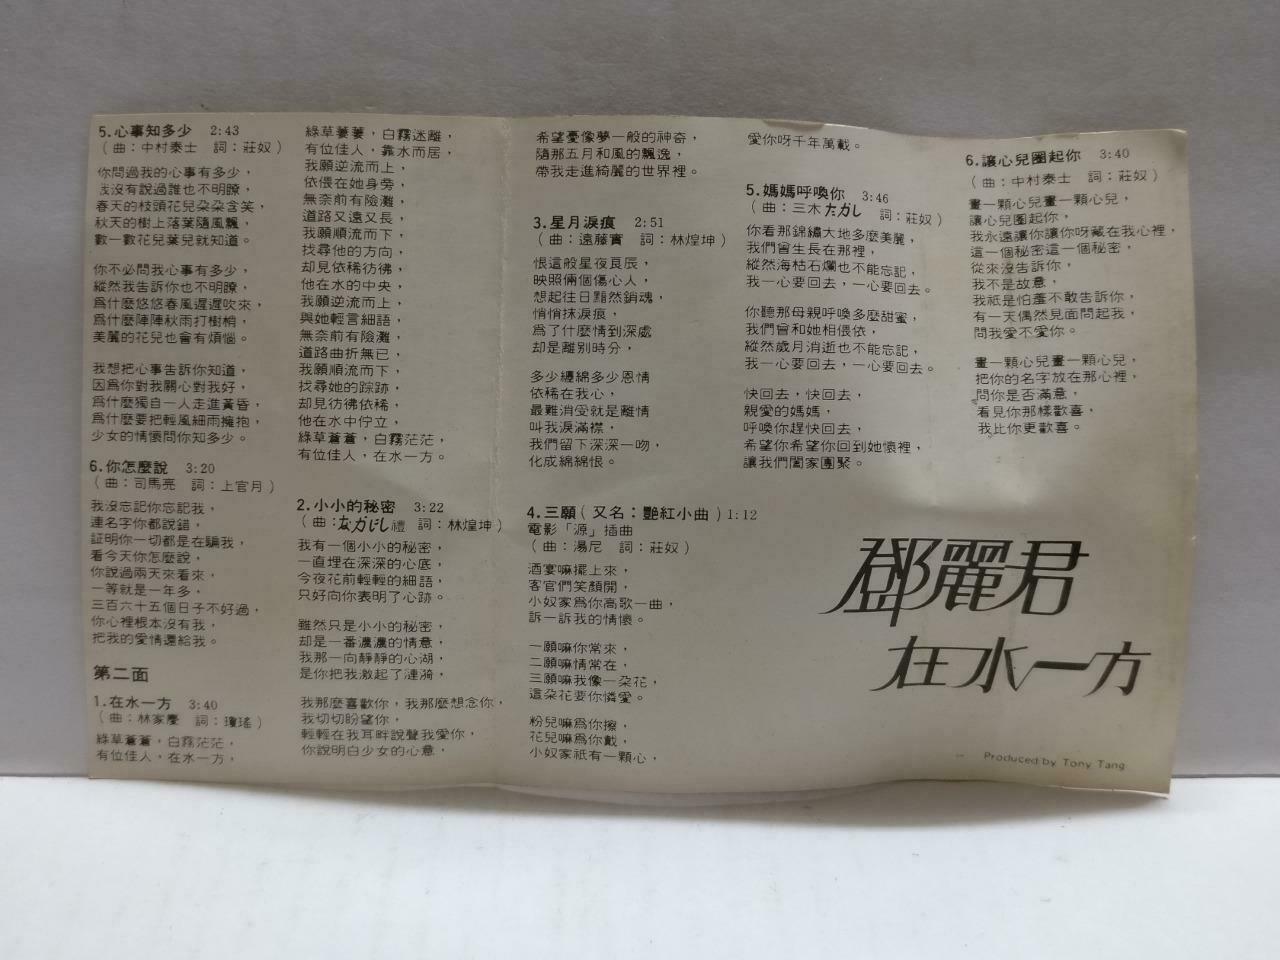 5.心事知多少 2:43
(曲:中村泰士 詞:莊奴)
你問過我的心事有多少,
我沒有說過誰也不明瞭,
春天的枝頭花兒朵朵含笑,
秋天的樹上落葉隨風飄,
數一數花兒葉兒就知道。
你不必問我心事有多少,
縱然我告訴你也不明瞭,
爲什麼悠悠春風遲遲吹來,
爲什麼陣陣秋雨打樹梢,
美麗的花兒也會有煩惱。
我想把心事告訴你知道,
因爲你對我關心對我好,
爲什麼獨自一人走進黃昏,
爲什麼要把輕風細雨擁抱,
少女的情懷問你知多少。
6.你怎麼說 3:20
(曲:司馬亮 詞:上官月)
我沒忘記你忘記我,
連名字你都說錯,
証明你一切都是在騙我,
看今天你怎麼說,
你說過兩天來看來,
一等就是一年多,
三百六十五個日子不好過,
你心裡根本沒有我,
把我的愛情還給我。
第二面
1.在水一方 3:40
(曲:林家慶 詞:瓊瑤)
綠草蒼蒼,白霧茫茫,
有位佳人,在水一方,
綠草萋萋,白霧迷離,
有位佳人,靠水而居,
我願逆流而上,
依偎在她身旁,
無奈前有險灘,
道路又遠又長,
我願順流而下,
找尋他的方向,
却見依稀彷彿,
他在水的中央,
我願逆流而上,
與她輕言細語,
無奈前有險灘,
道路曲折無已,
我願順流而下,
找尋她的踪跡,
却見彷彿依稀,
他在水中佇立,
綠草蒼蒼,白霧茫茫,
有位佳人,在水一方。
2.小小的秘密 3:22
(曲:なかにし禮 詞:林煌坤)
我有一個小小的秘密,
一直埋在深深的心底,
今夜花前輕輕的細語,
只好向你表明了心跡。
雖然只是小小的秘密,
却是一番濃濃的情意,
我那一向靜靜的心湖,
是你把我激起了漣漪,
我那麼喜歡你,我那麼想念你,
我切切盼望你,
輕輕在我耳畔說聲我愛你,
你說明白少女的心意,
希望憂像夢一般的神奇,
隨那五月和風的飄逸,
帶我走進綺麗的世界裡。
3.星月淚痕 2:51
(曲:遠藤實 詞:林煌坤)
恨這般星夜良辰,
映照倆個傷心人,
想起往日黯然銷魂,
悄悄抹淚痕,
爲了什麼情到深處
却是離別時分,
多少纏綿多少恩情
依稀在我心,
最難消受就是離情
叫我淚滿襟,
我們留下深深一吻,
化成綿綿恨。
4.三願(又名:艷紅小曲)1:12
電影「源」插曲
(曲:湯尼 詞:莊奴)
酒宴嘛擺上來,
客官們笑顏開,
小奴家爲你高歌一曲,
訴一訴我的情懷。
一願嘛你常來,
二願嘛情常在,
三願嘛我像一朵花,
這朵花要你憐愛。
粉兒嘛爲你擦,
花兒嘛爲你戴,
小奴家祇有一顆心,
愛你呀千年萬載。
5.媽媽呼喚你 3:46
(曲:三木たかし 詞:莊奴)
你看那錦繡大地多麼美麗,
我們會生長在那裡,
縱然海枯石爛也不能忘記,
我一心要回去,一心要回去。
你聽那母親呼喚多麼甜蜜,
我們會和她相偎依,
縱然歲月消逝也不能忘記,
我一心要回去,一心要回去。
快回去,快回去,
親愛的媽媽,
呼喚你趕快回去,
希望你希望你回到她懷裡,
讓我們闔家團聚。
6.讓心兒圈起你 3:40
(曲:中村泰士 詞:莊奴)
畫一顆心兒畫一顆心兒,
讓心兒圈起你,
我永遠讓你讓你呀藏在我心裡,
這一個秘密這一個秘密,
從來沒告訴你,
我不是故意,
我祇是怕羞不敢告訴你,
有一天偶然見面問起我,
問我愛不愛你。
畫一顆心兒畫一顆心兒,
把你的名字放在那心裡,
問你是否滿意,
看見你那樣歡喜,
我比你更歡喜。
鄧麗君
在水一方
Produced by Tony Tang